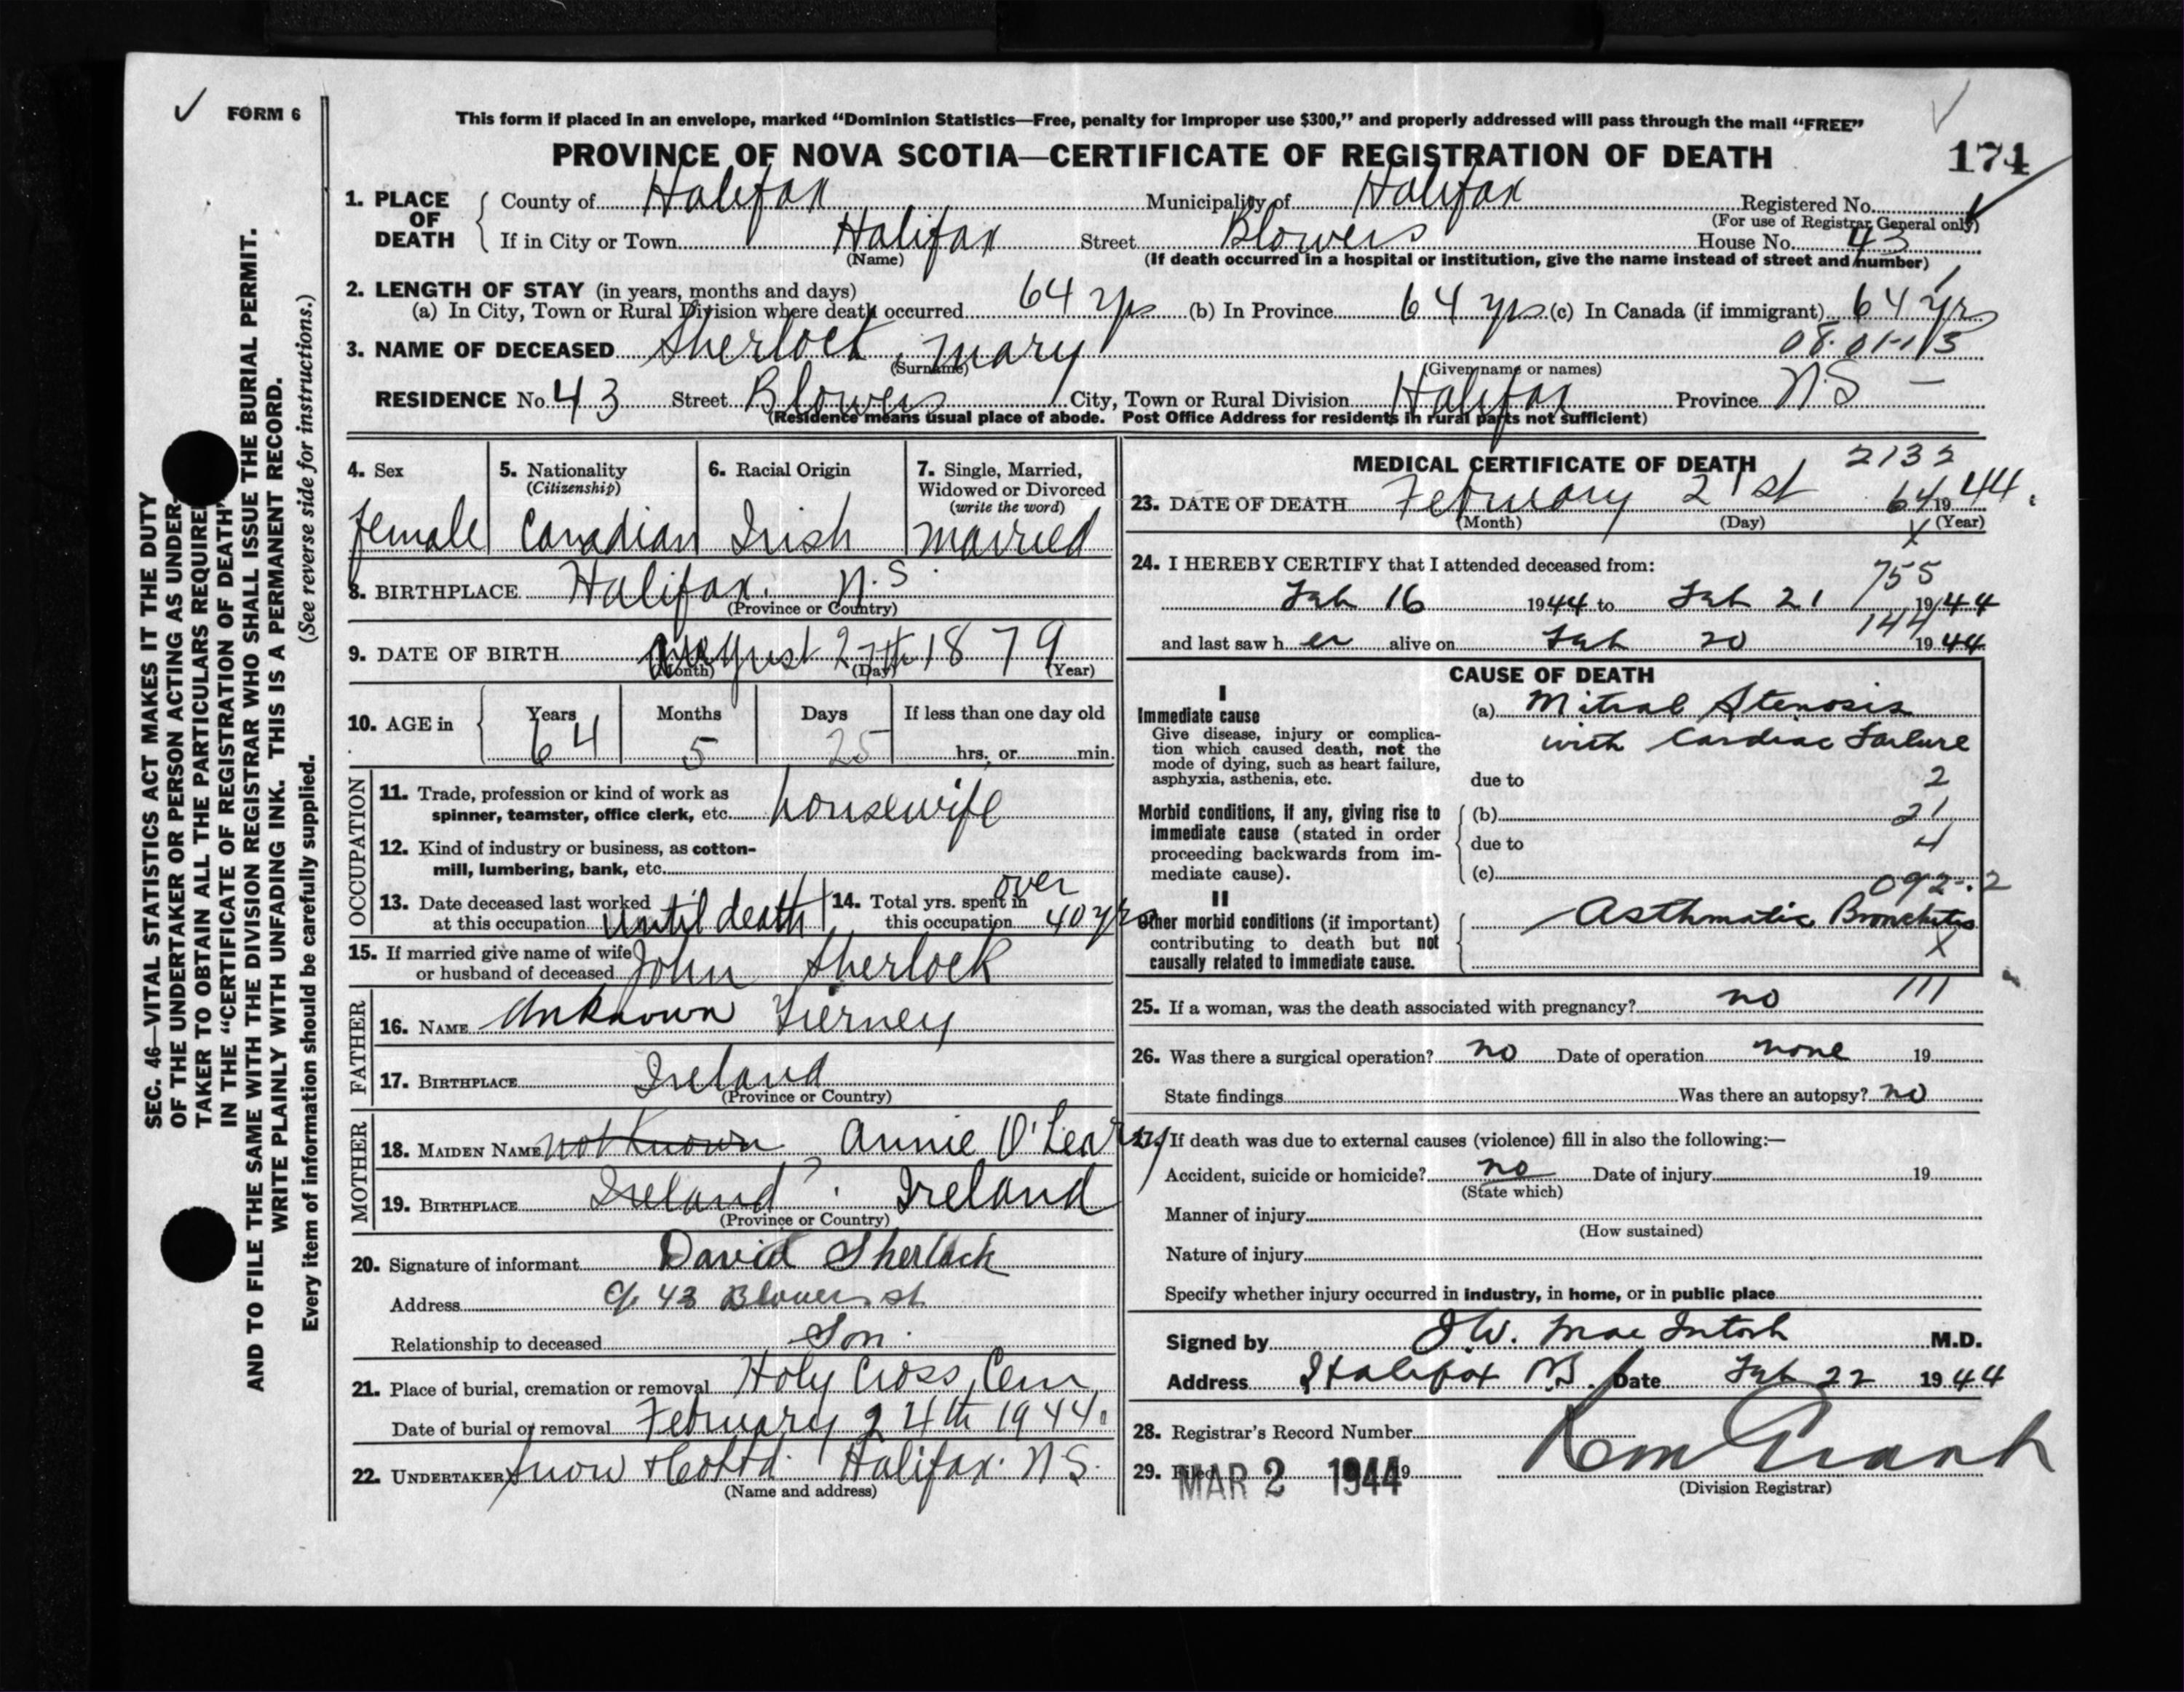 ✓ FORM 6
This form if placed in an envelope, marked "Dominion Statistics—Free, penalty for improper use $300," and properly addressed will pass through the mail "FREE"
PROVINCE OF NOVA SCOTIA—CERTIFICATE OF REGISTRATION OF DEATH
174
1. PLACE OF DEATH
County of Halifax Municipality of Halifax Registered No.
(For use of Registrar General only)
If in City or Town Halifax Street Blowers House No. 43
(Name) (If death occurred in a hospital or institution, give the name instead of street and number)
2. LENGTH OF STAY (in years, months and days)
(a) In City, Town or Rural Division where death occurred 64 yrs (b) In Province 64 yrs (c) In Canada (if immigrant) 64 yrs
08.01-113
3. NAME OF DECEASED Sherlock, Mary
(Surname) (Given name or names)
RESIDENCE No. 43 Street Blowers City, Town or Rural Division Halifax Province N.S —
(Residence means usual place of abode. Post Office Address for residents in rural parts not sufficient)
4. Sex
female
5. Nationality
(Citizenship)
Canadian
6. Racial Origin
Irish
7. Single, Married,
Widowed or Divorced
(write the word)
married
8. BIRTHPLACE Halifax. N.S.
(Province or Country)
9. DATE OF BIRTH August 27th 1879
(Month) (Day) (Year)
10. AGE in
Years Months Days If less than one day old
64 5 25 hrs. or min.
OCCUPATION
11. Trade, profession or kind of work as
spinner, teamster, office clerk, etc. housewife
12. Kind of industry or business, as cotton-
mill, lumbering, bank, etc.
13. Date deceased last worked
at this occupation until death
14. Total yrs. spent in
this occupation over 40 yrs
15. If married give name of wife
or husband of deceased John Sherlock
FATHER
16. NAME Unknown Tierney
17. BIRTHPLACE Ireland
(Province or Country)
MOTHER
18. MAIDEN NAME not known Annie O'Leary
19. BIRTHPLACE Ireland ? Ireland
(Province or Country)
20. Signature of informant David Sherlock
Address c/o 43 Blowers st
Relationship to deceased Son
21. Place of burial, cremation or removal Holy Cross Cem,
Date of burial or removal February 24th 1944
22. UNDERTAKER Snow & Co Ltd. Halifax. N S.
(Name and address)
MEDICAL CERTIFICATE OF DEATH
2132
23. DATE OF DEATH February 21st 1944.
(Month) (Day) (Year)
64
X
24. I HEREBY CERTIFY that I attended deceased from:
755
Feb 16 1944 to Feb 21 1944
144
and last saw her alive on Feb 20 1944
CAUSE OF DEATH
I
Immediate cause
Give disease, injury or complica-
tion which caused death, not the
mode of dying, such as heart failure,
asphyxia, asthenia, etc.
(a) Mitral Stenosis
with Cardiac Failure
due to
2
Morbid conditions, if any, giving rise to
immediate cause (stated in order
proceeding backwards from im-
mediate cause).
(b)
21
due to
4
(c)
092-.2
II
Other morbid conditions (if important)
contributing to death but not
causally related to immediate cause.
Asthmatic Bronchitis
X
111
25. If a woman, was the death associated with pregnancy? no
26. Was there a surgical operation? no Date of operation none 19
State findings Was there an autopsy? no
27. If death was due to external causes (violence) fill in also the following:—
Accident, suicide or homicide? no Date of injury 19
(State which)
Manner of injury
(How sustained)
Nature of injury
Specify whether injury occurred in industry, in home, or in public place
Signed by J W. MacIntosh M.D.
Address Halifax N.S. Date Feb 22 1944
28. Registrar's Record Number
29. Filed MAR 2 1944 19
(Division Registrar)
SEC. 46—VITAL STATISTICS ACT MAKES IT THE DUTY
OF THE UNDERTAKER OR PERSON ACTING AS UNDER-
TAKER TO OBTAIN ALL THE PARTICULARS REQUIRE
IN THE "CERTIFICATE OF REGISTRATION OF DEATH"
AND TO FILE THE SAME WITH THE DIVISION REGISTRAR WHO SHALL ISSUE THE BURIAL PERMIT.
WRITE PLAINLY WITH UNFADING INK. THIS IS A PERMANENT RECORD.
Every item of information should be carefully supplied. (See reverse side for instructions.)